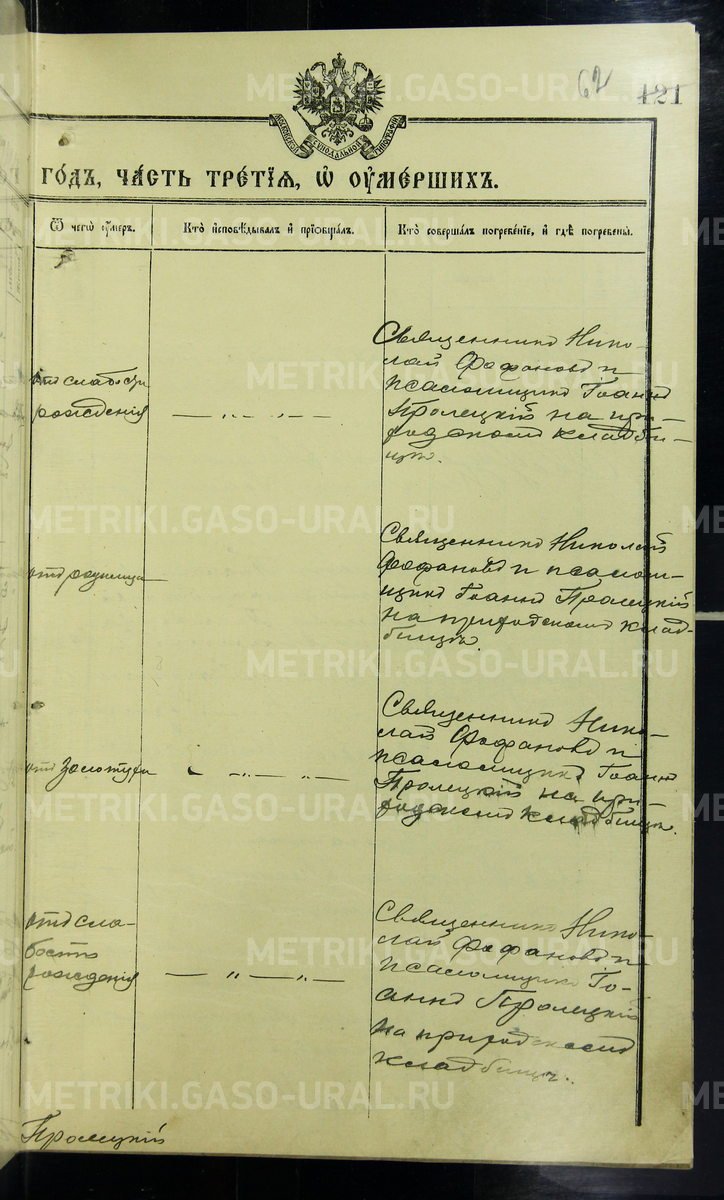 62 421
МОСКОВСКОЙ СѴНОДАЛЬНОЙ ТИПОГРАФІИ
ГО́ДЪ, ЧА́СТЬ ТРЕ́ТІѦ, Ѡ ОУ҆МЕ́РШИХЪ.
Ѿ чегѡ̀ оу҆́меръ.
Кто̀ и҆сповѣ́дывалъ и҆ прїѡбща́лъ.
Кто̀ соверша́лъ погребе́нїе, и҆ гдѣ̀ погребены̀.
отъ слабости
рожденія
— „ — „ —
Священникъ Нико-
лай Фофановъ и
псаломщикъ Іоаннъ
Пролецкій на при-
ходскомъ кладби-
щѣ.
отъ родимца
Священникъ Николай
Фофановъ и псалом-
щикъ Іоаннъ Пролецкій
на приходскомъ клад-
бищѣ.
отъ золотухи
— „ — „ —
Священникъ Нико-
лай Фофановъ и
псаломщикъ Іоаннъ
Пролецкій на при-
ходскомъ кладбищѣ.
отъ сла-
бости
рожденія
— „ — „ —
Священникъ Нико-
лай Фофановъ и
псаломщикъ Іо-
аннъ Пролецкій
на приходскомъ
кладбищѣ.
Пролецкій
METRIKI.GASO-URAL.RU